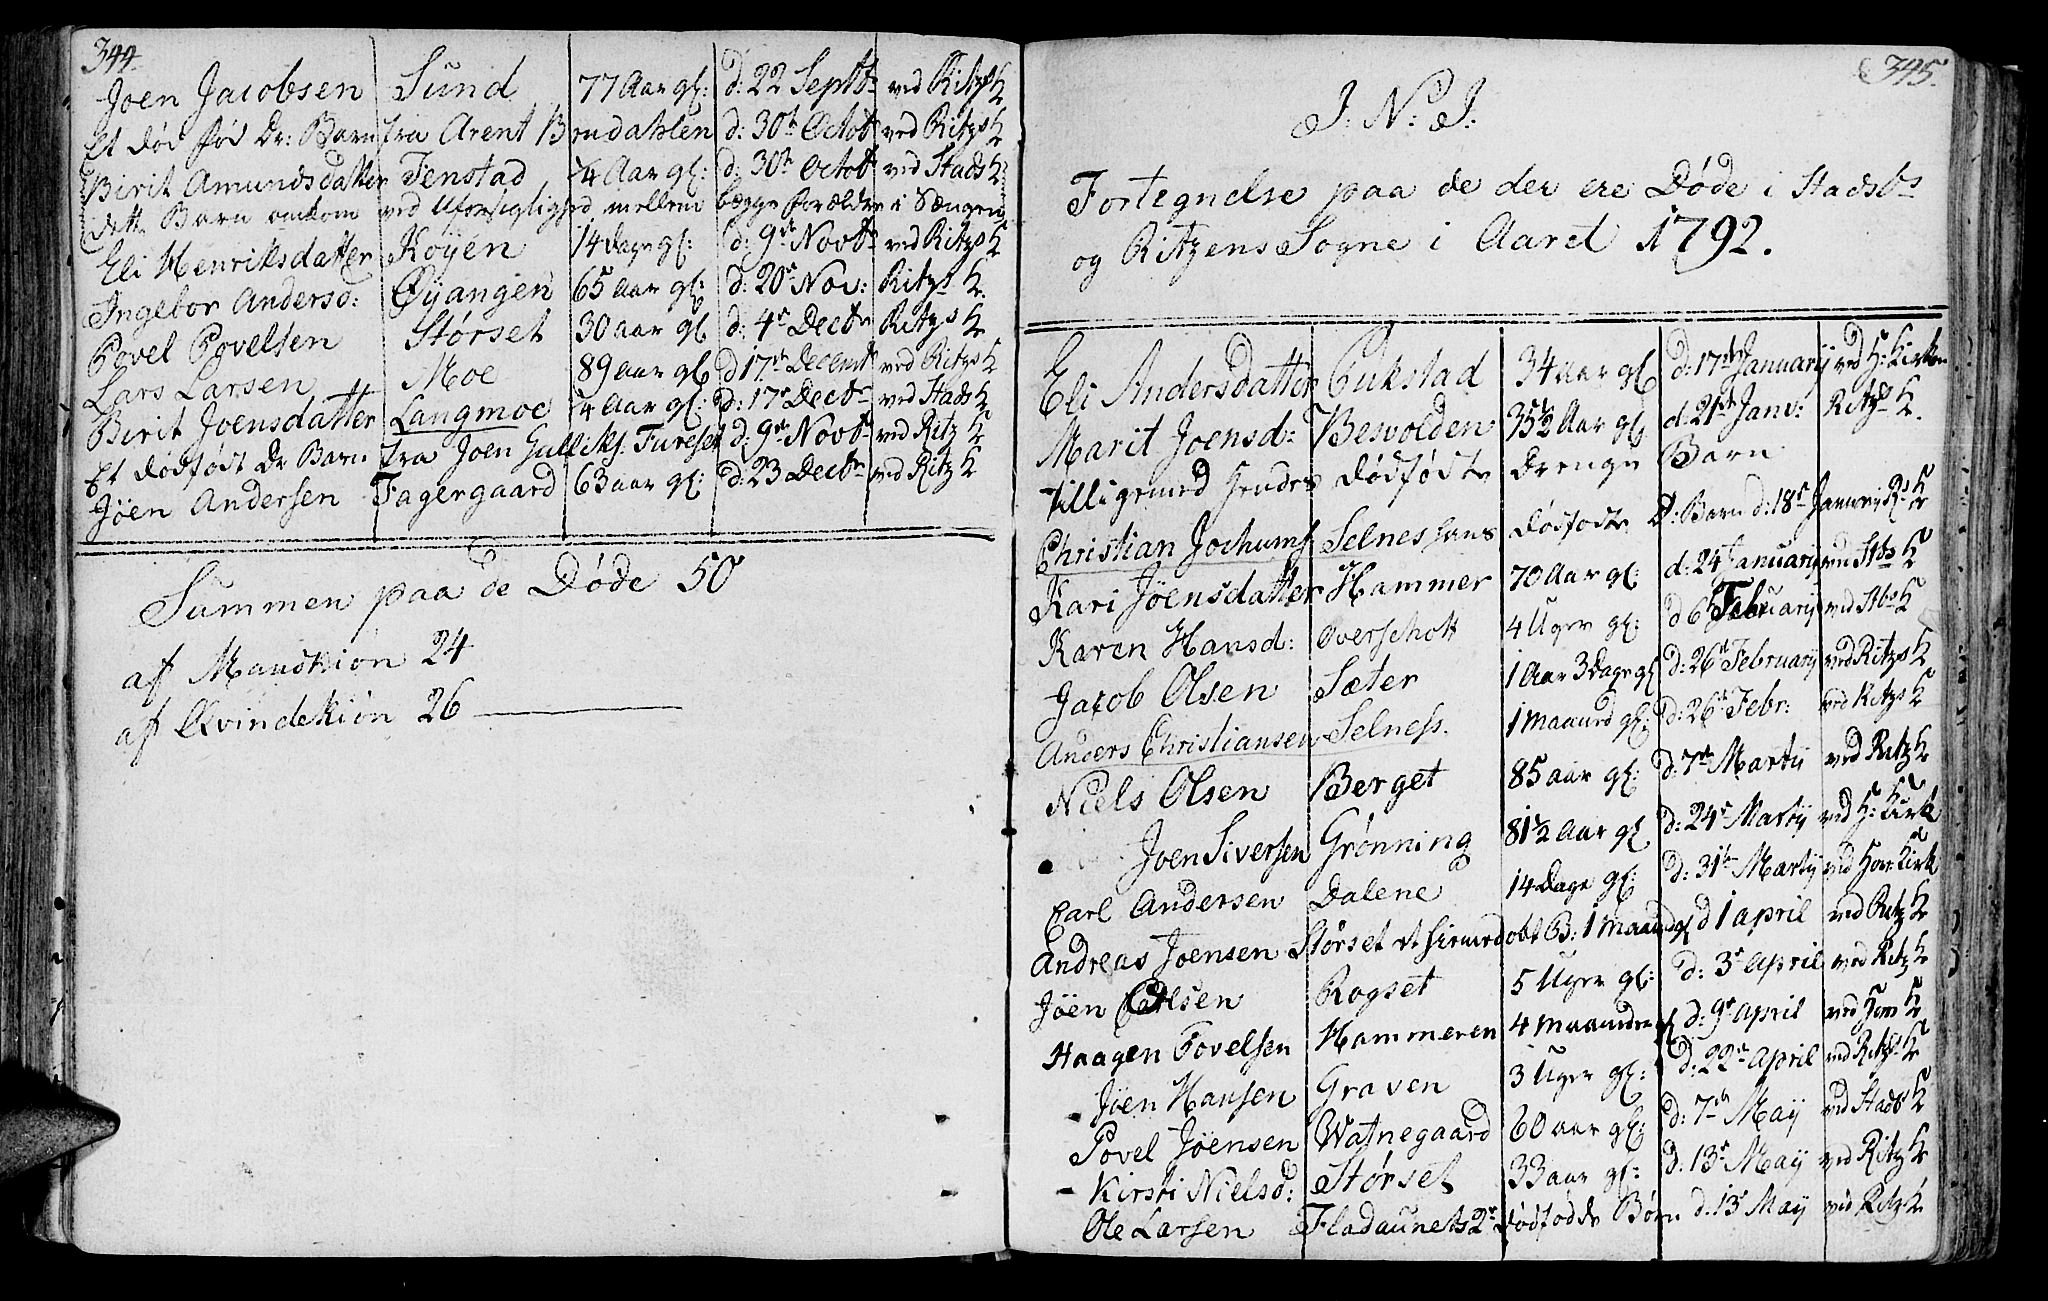 344.
Joen Jacobsen Sund 77 Aar gl: d: 22 Septbr ved Ritzs K
Et død fød Dr: Barn fra Arent Brudahlen d: 30te Octob ved Ritzs K
Birit Amundsdatter Tenstad ¼ Aar gl: d: 30te Octob ved Stads K
dette Barn omkom ved Uforsiglighed mellem begge forældre i Sængen
Eli Henriksdatter Køyen 14 dage gl: d: 9de Novbr ved Ritzs K
Ingebor Andersd: Øyangen 65 Aar gl: d: 20de Nov: Ritzs K
Povel Povelsen Størset 30 aar gl d: 4de Decbr Ritzs K
Lars Larsen Moe 89 aar gl d 17de Decemb ved Ritzs K
Birit Joensdatter Langmoe ¼ Aar gl: d: 17de Decbr ved Stads K
Et dødfødt Dr Barn fra Joen Gulliks: Tureset d: 9de Novbr ved Ritz K
Jöen Andersen Fagergaard 63 aar gl: d: 23 Decbr ved Ritz K
Summen paa de Døde 50
af Mandkiøn 24
af Qvindekiøn 26
345.
J: N: J:
Fortegnelse paa de der ere Døde i Stadsbs
og Ritzens Sogne i Aaret 1792.
Eli Andersdatter Cukstad 34 aar gl d: 17de Januarij ved H: Kirken
Marit Joensd: Besvolden 35½ Aar gl d: 21de Janv: Ritzs K.
tilligemed hendes dødfødte Drenge Barn
Christian Jochums Selnes hans dødfødte D: Barn d: 18de Januarij Rs K
Kari Jöensdatter Hammer 70 Aar gl: d: 24 Januarij ved Stbs K
Karen Hansd: Overschott 4 Uger gl: d 6 Februarij ved Stbs K
Jacob Olsen Sæter 1 Aar 3 Dage gl d: 26de February ved Ritzs K
Anders Christiansen Selness. 1 maaned gl: d: 26de Febr: ved Ritzs K
Niels Olsen Berget 85 aar gl: d: 7de Martij ved Ritz K
Joen Siversen Grønning 81½ Aar gl d: 24de Martij ved H: Kirk
Carl Andersen Dalene 14 Dage gl: d: 31te Martij ved Hov Kirk
Andreas Joensen Størset et hiemedøbt B: 1 maaned gl d 1 april ved Ritz K
Jöen Olsen Rogset 5 Uger gl: d: 3de April ved Ritz K
Haagen Povelsen Hammeren 4 maaneder gl d: 9de april ved Hov K
Jöen Hansen Graven 3 Uger gl: d: 22de April ved Ritzs K
Povel Jöensen Watnegaard 60 aar gl: d: 7de May ved Stads K
Kirsti Nielsd: Størset 33 aar gl: d: 13de May ved Ritz K
Ole Larsen Fladaunets 2de dødfødde Børn d. 13de May ved Ritz K